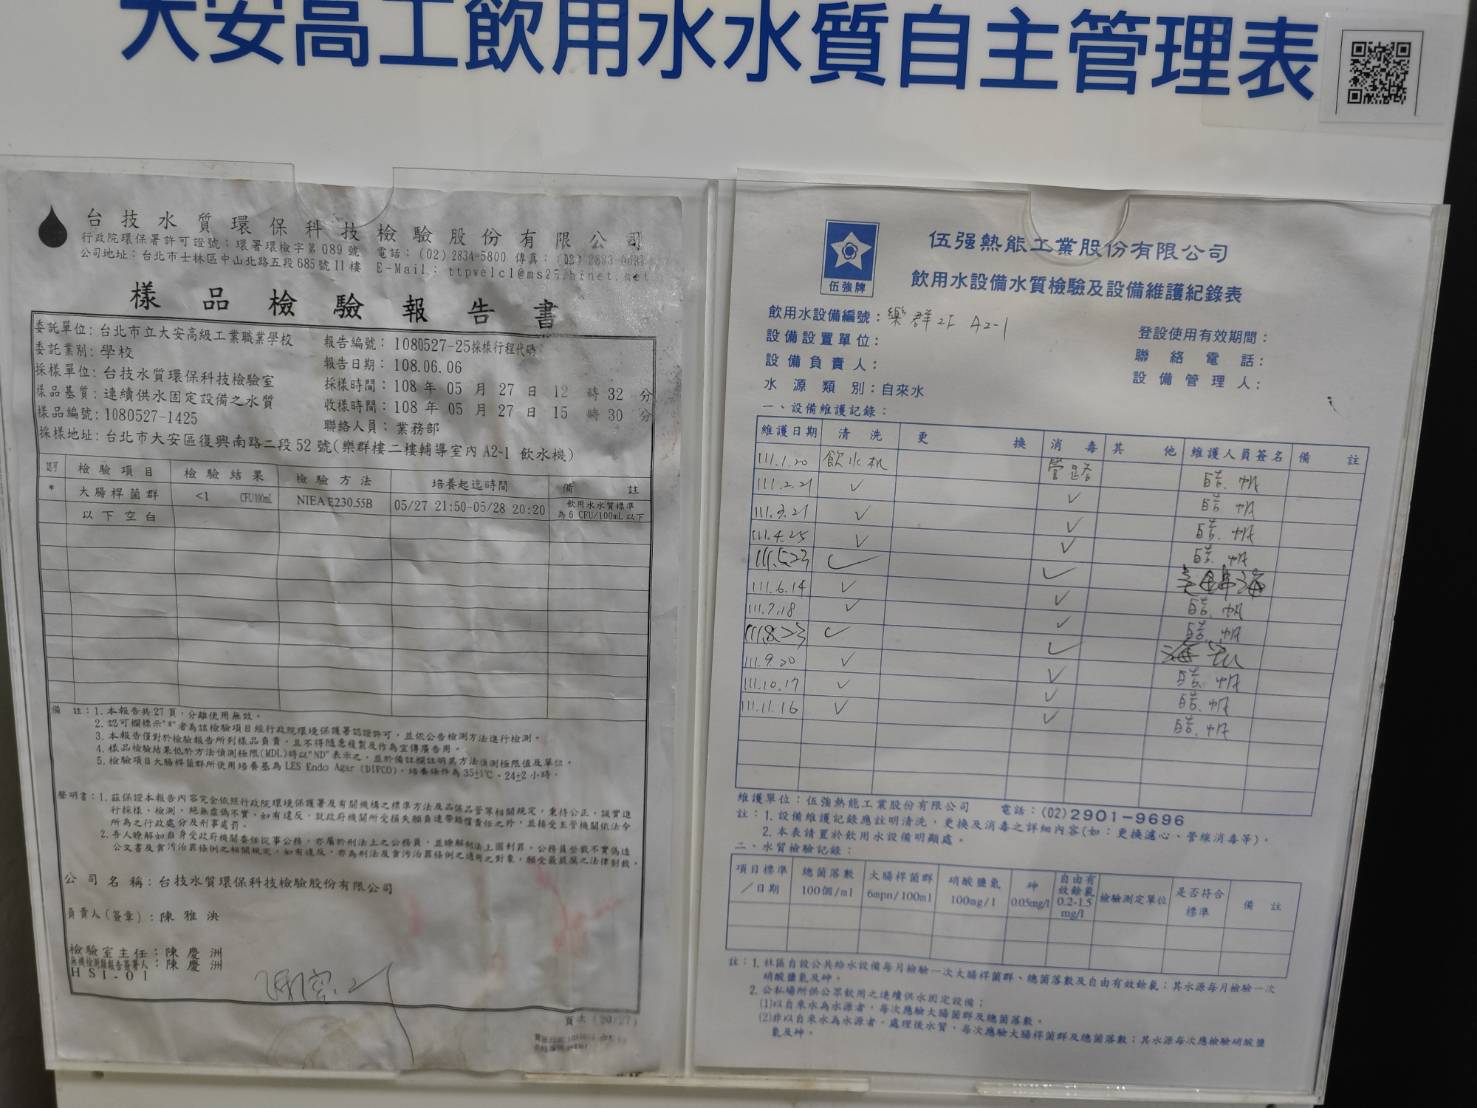 大安高工飲用水水質自主管理表
台技水質環保科技檢驗股份有限公司
行政院環保署許可證號：環署環檢字第089號 電話：(02)2834-5800 傳真：
公司地址：台北市士林區中山北路五段685號11樓 E-Mail：
樣品檢驗報告書
委託單位：台北市立大安高級工業職業學校
委託業別：學校
採樣單位：台技水質環保科技檢驗室
樣品基質：連續供水固定設備之水質
樣品編號：1080527-1425
採樣地址：台北市大安區復興南路二段52號(樂群樓二樓輔導室內A2-1 飲水機)
報告編號：1080527-25採樣行程代碼：
報告日期：108.06.06
採樣時間：108 年 05 月 27 日 12 時 32 分
收樣時間：108 年 05 月 27 日 15 時 30 分
聯絡人員：業務部
認可 檢驗項目 檢驗結果 檢驗方法 培養起迄時間 備註
* 大腸桿菌群 <1 CFU/100mL NIEA E230.55B 05/27 21:50-05/28 20:20 飲用水水質標準為6 CFU/100mL以下
以下空白
備 註：1.本報告共27頁，分離使用無效。
2.認可欄標示"*"者為該檢驗項目經行政院環境保護署認證許可，並依公告檢測方法進行檢測。
3.本報告僅對於檢驗報告所列樣品負責，且不得隨意複製及作為宣傳廣告用。
4.樣品檢驗結果低於方法偵測極限(MDL)時以"ND"表示之，並於備註欄註明其方法偵測極限值及單位。
5.檢驗項目大腸桿菌群所使用培養基為LES Endo Agar (DIFCO)，培養條件為35±1℃、24±2小時。
聲明書：1.茲保證本報告內容完全依照行政院環境保護署及有關機構之標準方法及品保品管等相關規定，秉持公正、誠實進
行採樣、檢測，絕無虛偽不實，如有違反，就政府機關所受損失願負連帶賠償責任之外，並接受主管機關依法令
所為之行政處分及刑事處罰。
2.吾人瞭解如自身受政府機關委任從事公務，亦屬於刑法上之公務員，並瞭解刑法上圖利罪、公務員登載不實偽造
公文書及貪污治罪條例之相關規定，如有違反，亦為刑法及貪污治罪條例之適用之對象，願受最嚴厲之法律制裁。
公司名稱：台技水質環保科技檢驗股份有限公司
負責人(簽章)：陳雅泱
檢驗室主任：陳慶洲
無機檢測類報告簽署人：陳慶洲
HSI-01
伍強牌
伍强熱能工業股份有限公司
飲用水設備水質檢驗及設備維護紀錄表
飲用水設備編號：樂群2F A2-1
設備設置單位：
設備負責人：
水源類別：自來水
登設使用有效期間：
聯絡電話：
設備管理人：
一、設備維護記錄：
維護日期 清洗 更換 消毒 其他 維護人員簽名 備註
111.1.20 飲水机 管路
111.2.21 ✓ ✓
111.3.21 ✓ ✓
111.4.25 ✓ ✓
111.5.23 ✓ ✓
111.6.14 ✓ ✓
111.7.18 ✓ ✓
111.8.23 ✓ ✓
111.9.20 ✓ ✓
111.10.17 ✓ ✓
111.11.16 ✓ ✓
維護單位：伍強熱能工業股份有限公司 電話：(02)2901-9696
註：1.設備維護記錄應註明清洗，更換及消毒之詳細內容(如：更換濾心、管線消毒等)。
2.本表請置於飲用水設備明顯處。
二、水質檢驗記錄：
項目標準／日期 總菌落數 100個/ml 大腸桿菌群 6mpn/100ml 硝酸鹽氮 100mg/l 砷 0.05mg/l 自由有效餘氯 0.2-1.5 mg/l 檢驗測定單位 是否符合標準 備註
註：1.社區自設公共給水設備每月檢驗一次大腸桿菌群、總菌落數及自由有效餘氯；其水源每月檢驗一次
硝酸鹽氮及砷。
2.公私場所供公眾飲用之連續供水固定設備：
(1)以自來水為水源者，每次應驗大腸菌群及總菌落數。
(2)非以自來水為水源者，處理後水質，每次應驗大腸桿菌群及總菌落數；其水源每次應檢驗硝酸鹽
氮及砷。